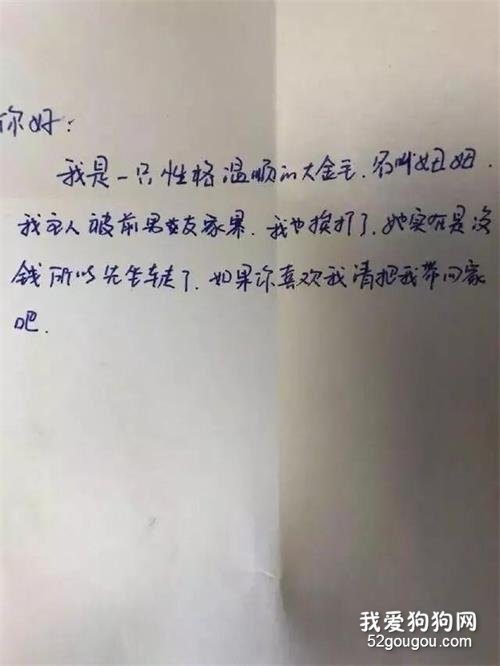 你好：
我是一只性格温顺的大金毛.名叫妞妞.
我主人被前男友家暴.我也挨打了.她实在是没
钱所以先坐车走了.如果你喜欢我请把我带回家
吧.
我爱狗狗网
52gougou.com